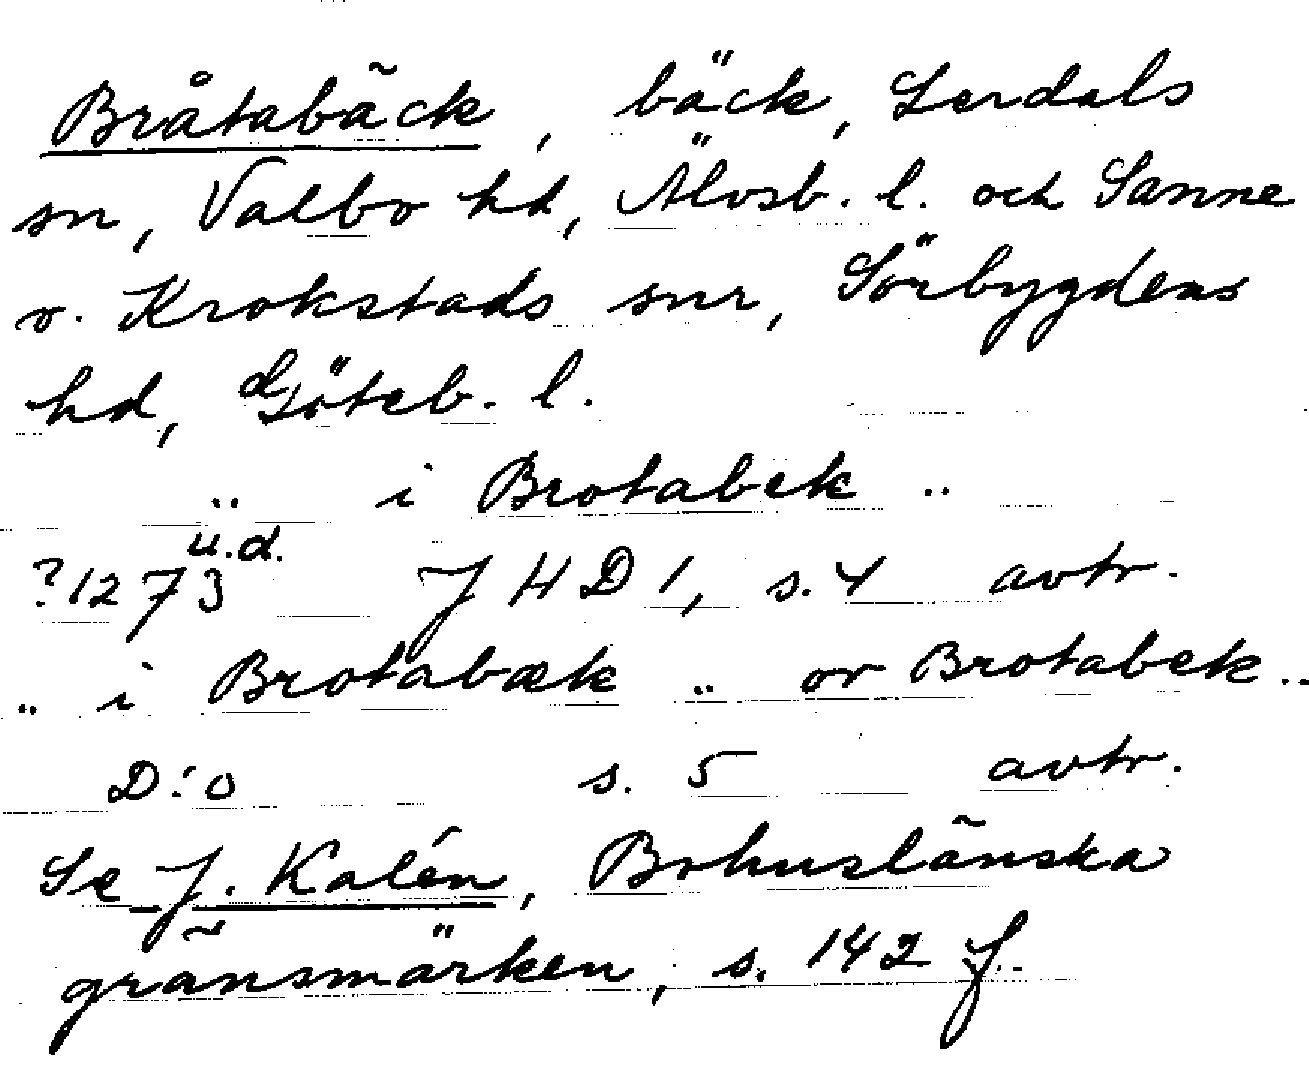 Bråtabäck, bäck, Lerdals
sn, Valbo hd, Älvsb. l. och Sanne
o. Krokstads snr, Sörbygdens
hd, Göteb. l.
.. i Brotabek ..
u.d.
?1273 JHD 1, s. 4 avtr.
.. i Brotabæk .. or Brotabek ..
D:o s. 5 avtr.
Se J. Kalén, Bohuslänska
gränsmärken, s. 142 f.